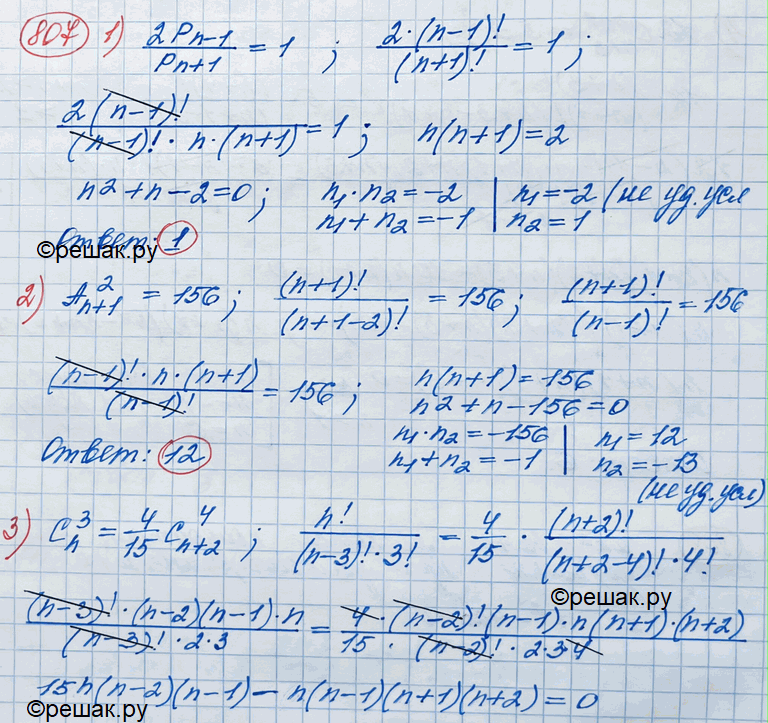 807 1) 2P_{n-1}/P_{n+1} = 1 ; 2·(n-1)!/(n+1)! = 1 ;
2(n-1)!/((n-1)!·n·(n+1)) = 1 ; n(n+1)=2
n²+n-2=0 ; n₁·n₂=-2 | n₁=-2 (не уд. усл
n₁+n₂=-1 | n₂=1
Ответ: 1
©решак.ру
2) A²_{n+1} = 156 ; (n+1)!/(n+1-2)! = 156 ; (n+1)!/(n-1)! = 156
(n-1)!·n·(n+1)/(n-1)! = 156 ; n(n+1)=156
n²+n-156=0
n₁·n₂=-156 | n₁=12
Ответ: 12 n₁+n₂=-1 | n₂=-13
(не уд. усл)
3) C³_n = 4/15 C⁴_{n+2} ; n!/((n-3)!·3!) = 4/15 · (n+2)!/((n+2-4)!·4!)
©решак.ру
(n-3)!·(n-2)(n-1)·n/((n-3)!·2·3) = 4·(n-2)!(n-1)·n(n+1)·(n+2)/(15·(n-2)!·2·3·4)
15n(n-2)(n-1)-n(n-1)(n+1)(n+2)=0
©решак.ру